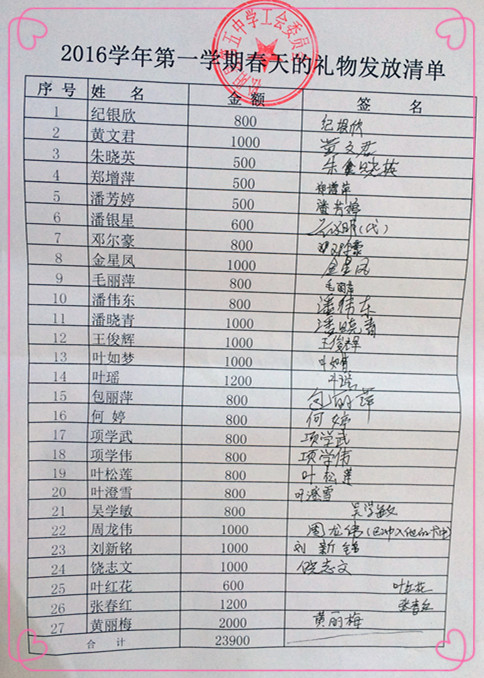 五中学工会委员
2016学年第一学期春天的礼物发放清单
序 号 姓 名 金 额 签 名
1 纪银欣 800 纪银欣
2 黄文君 1000 黄文君
3 朱晓英 500 朱晓英
4 郑增萍 500 郑增萍
5 潘芳婷 500 潘芳婷
6 潘银星 600 (代)
7 邓尔豪 800 邓尔豪
8 金星凤 1000 金星凤
9 毛丽萍 800 毛丽萍
10 潘伟东 800 潘伟东
11 潘晓青 1000 潘晓青
12 王俊辉 1000 王俊辉
13 叶如梦 1000 叶如梦
14 叶瑶 1200 叶瑶
15 包丽萍 800 包丽萍
16 何 婷 800 何婷
17 项学武 800 项学武
18 项学伟 800 项学伟
19 叶松莲 800 叶松莲
20 叶澄雪 800 叶澄雪
21 吴学敏 800 吴学敏
22 周龙伟 1000 周龙伟(已冲入他的卡中)
23 刘新铭 1000 刘新铭
24 饶志文 1000 饶志文
25 叶红花 600 叶红花
26 张春红 1200 张春红
27 黄丽梅 2000 黄丽梅
合 计 23900